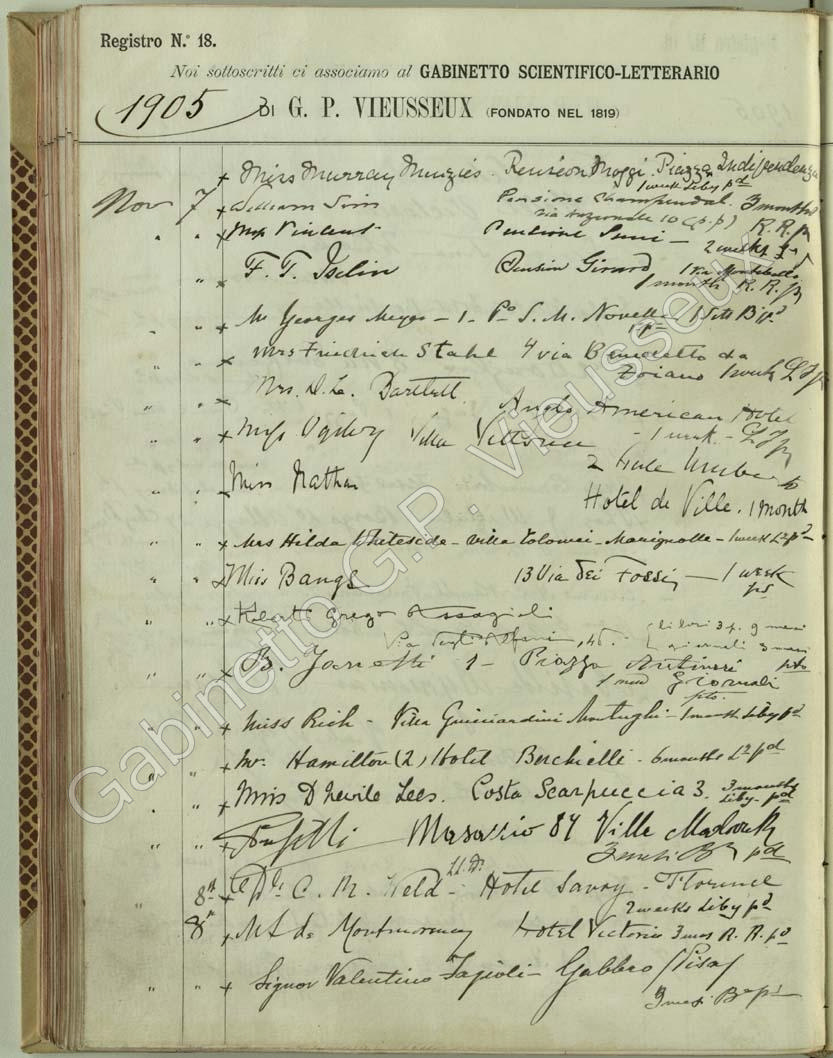 Registro N.º 18.
Noi sottoscritti ci associamo al GABINETTO SCIENTIFICO-LETTERARIO
1905 DI G. P. VIEUSSEUX (FONDATO NEL 1819)
Miss Murray Menzies Pension Moggi. Piazza Indipendenza
1 week Liby pd
Nov 7 William Sim Pensione Chapendal. 3 months
via nazionale 10 (p.p) R. R. p
" " Miss Vincent Pensione Simi — 2 weeks
" F. T. Iselin Pension Girard 1 Via Montebello
1 month R. R. p
" " Mr Georges Meyer — 1 - Po S. M. Novella
" " Mrs Friedrich Stahl 4 via Benedetto da
Foiano 1 week
" " Mrs. D. L. Bartlett
Anglo American Hotel
" " Miss Ogilvy Villa Vittoria - 1 week -
2
" " Miss Nathan Hotel de Ville. 1 month
" " Mrs Hilda Whiteside - Villa Tolomei - Marignolle - 1 week
" " Miss Bangs 13 Via dei Fossi, — 1 week
pd
" " Roberto Grego Assagioli
Via degli Alfani, 46. libri 3 p. 9 mesi
giornali 3 mesi
" " B. 1 - Piazza Antinori pto
1 mese Giornali
pto.
" " Miss Rich - Villa Guicciardini Montughi - 1 month Liby pd
" " Mr. Hamilton (2) Hotel Berchielli - 6 months
" " Miss D Nevile Lees. Costa Scarpuccia 3. 3 months
Liby. pd
" " 84 Ville
3 mesi pd
8th C. M. Weld - LL.D. Hotel Savoy - Florence
2 weeks Liby pd
8th M L de Montmorency Hotel Victoria 3 mos R. R. pd
" " Signor Valentino Fagioli - Gabbro (Pisa)
3 mesi
Gabinetto G.P. Vieusseux